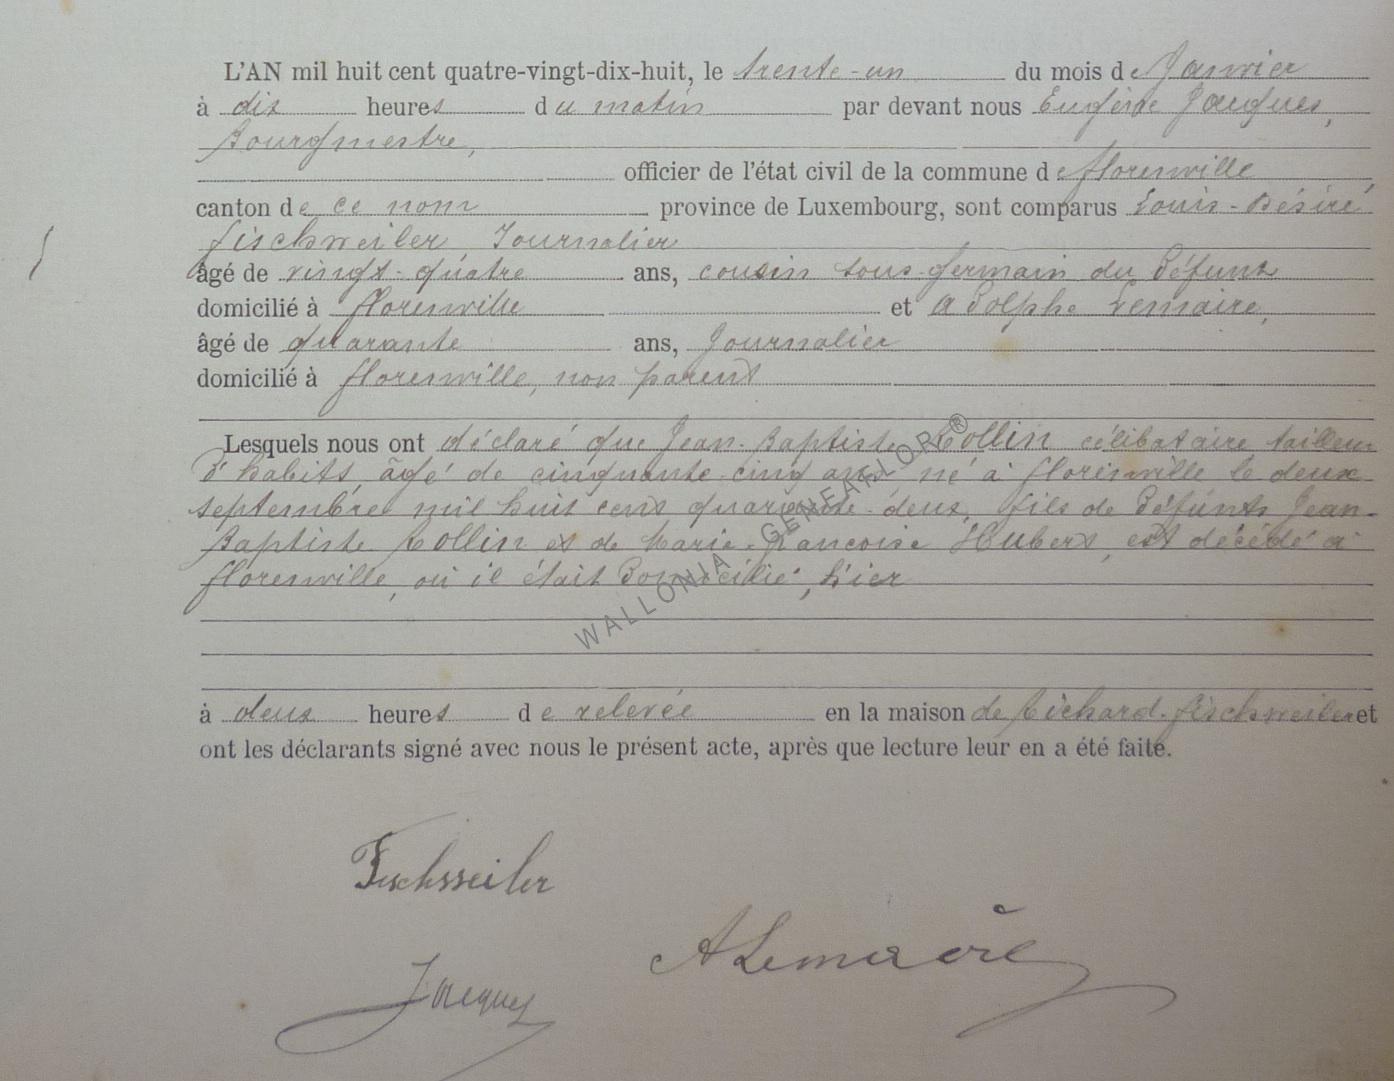 L'AN mil huit cent quatre-vingt-dix-huit, le trente-un du mois de Janvier
à dix heures du matin par devant nous Eugène Jacques,
Bourgmestre,
officier de l'état civil de la commune de Florenville
canton de ce nom province de Luxembourg, sont comparus Louis-Désiré
Fischweiler Journalier
âgé de vingt-quatre ans, cousin sous-germain du défunt
domicilié à Florenville et Adolphe Lemaire,
âgé de quarante ans, Journalier
domicilié à Florenville, non parent
Lesquels nous ont déclaré que Jean-Baptiste Collin célibataire tailleur
d'habits, âgé de cinquante-cinq ans né à Florenville le deux
septembre mil huit cent quarante-deux, fils de défunts Jean-
Baptiste Collin et de Marie-Françoise Hubert, est décédé à
Florenville, où il était domicilié, hier
à deux heures de relevée en la maison de Richard Fischweiler et
ont les déclarants signé avec nous le présent acte, après que lecture leur en a été faite.
Fischsseiler
ALemaire
Jacques
WALLONIA GENEAFLOR®